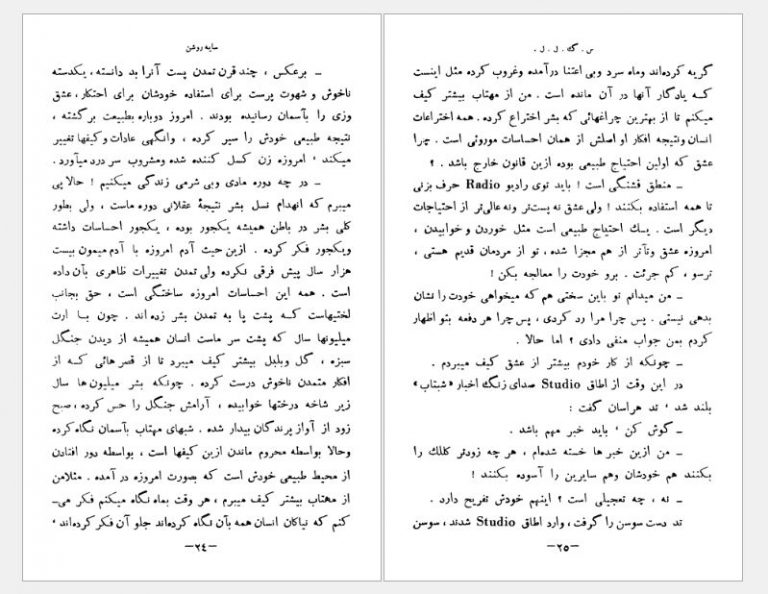 سایه روشن
ـ برعکس ، چند قرن تمدن پست آنرا بد دانسته ، یکدسته
ناخوش و شهوت پرست برای استفاده خودشان برای احتکار ، عشق
ورزی را بآسمان رسانیده بودند . امروز دوباره بطبیعت برگشته ،
نتیجه طبیعی خودش را سیر کرده ، وانگهی عادات و کیفها تغییر
میکند ٬ امروزه زن کسل کننده شده ومشروب سر درد میآورد .
ـ در چه دوره مادی وبی شرمی زندگی میکنیم ! حالا پی
میبرم که انهدام نسل بشر نتیجهٔ عقلانی دوره ماست ، ولی بطور
کلی بشر در باطن همیشه یکجور بوده ، یکجور احساسات داشته
ویکجور فکر کرده . ازین حیث آدم امروزه با آدم میمون بیست
هزار سال پیش فرقی نکرده ولی تمدن تغییرات ظاهری بآن داده
است . همه این احساسات امروزه ساختگی است ، حق بجانب
لختیهاست کـه پشت پا به تمدن بشر زده اند . چون بـا ارث
میلیونها سال که پشت سر ماست انسان همیشه از دیدن جنگل
سبزه ، گل وبلبل بیشتر کیف میبرد تا از قصر هائی کـه از
افکار متمدن ناخوش درست کرده . چونکه بشر میلیون ها سال
زیر شاخه درختها خوابیده ، آرامش جنگل را حس کرده ، صبح
زود از آواز پرندگان بیدار شده . شبهای مهتاب بآسمان نگاه کرده
وحالا بواسطه محروم ماندن ازین کیفها است ، بواسطه دور افتادن
از محیط طبیعی خودش است که بصورت امروزه در آمده . مثلامن
از مهتاب بیشتر کیف میبرم ، هر وقت بماه نگاه میکنم فکر میـ
کنم که نیاکان انسان همه بآن نگاه کرده‌اند جلو آن فکر کرده‌اند ٬
ـ٢٤ـ
س . گ . ل . ل .
گریه کرده‌اند وماه سرد وبی اعتنا درآمده وغروب کرده مثل اینست
کـه یادگار آنها در آن مانده است . من از مهتاب بیشتر کیف
میکنم تا از بهترین چراغهائی که بشر اختراع کرده . همه اختراعات
انسان ونتیجه افکار او اصلش از همان احساسات موروثی است . چرا
عشق که اولین احتیاج طبیعی بوده ازین قانون خارج باشد . ؟
ـ منطق قشنگی است ! باید توی رادیو Radio حرف بزنی
تا همه استفاده بکنند ! ولی عشق نه پست‌تر ونه عالی‌تر از احتیاجات
دیگر است . یك احتیاج طبیعی است مثل خوردن و خوابیدن ،
امروزه عشق وتآتر از هم مجزا شده ، تو از مردمان قدیم هستی ،
ترسو ، کم جرئت . برو خودت را معالجه بکن !
ـ من میدانم تو باین سختی هم که میخواهی خودت را نشان
بدهی نیستی . پس چرا مرا رد کردی ، پس چرا هر دفعه بتو اظهار
کردم بمن جواب منفی دادی ؟ اما حالا .
ـ چونکه از کار خودم بیشتر از عشق کیف میبردم .
در این وقت از اطاق Studio صدای زنگ اخبار «شبتاب»
بلند شد ٬ تد هراسان گفت :
ـ گوش کن ٬ باید خبر مهم باشد .
ـ من ازین خبر ها خسته شده‌ام ، هر چه زودتر كلك را
بکنند هم خودشان وهم سایرین را آسوده بکنند !
ـ نه ، چه تعجیلی است ؟ اینهم خودش تفریح دارد .
تد دست سوسن را گرفت ، وارد اطاق Studio شدند ، سوسن
ـ٢٥ـ